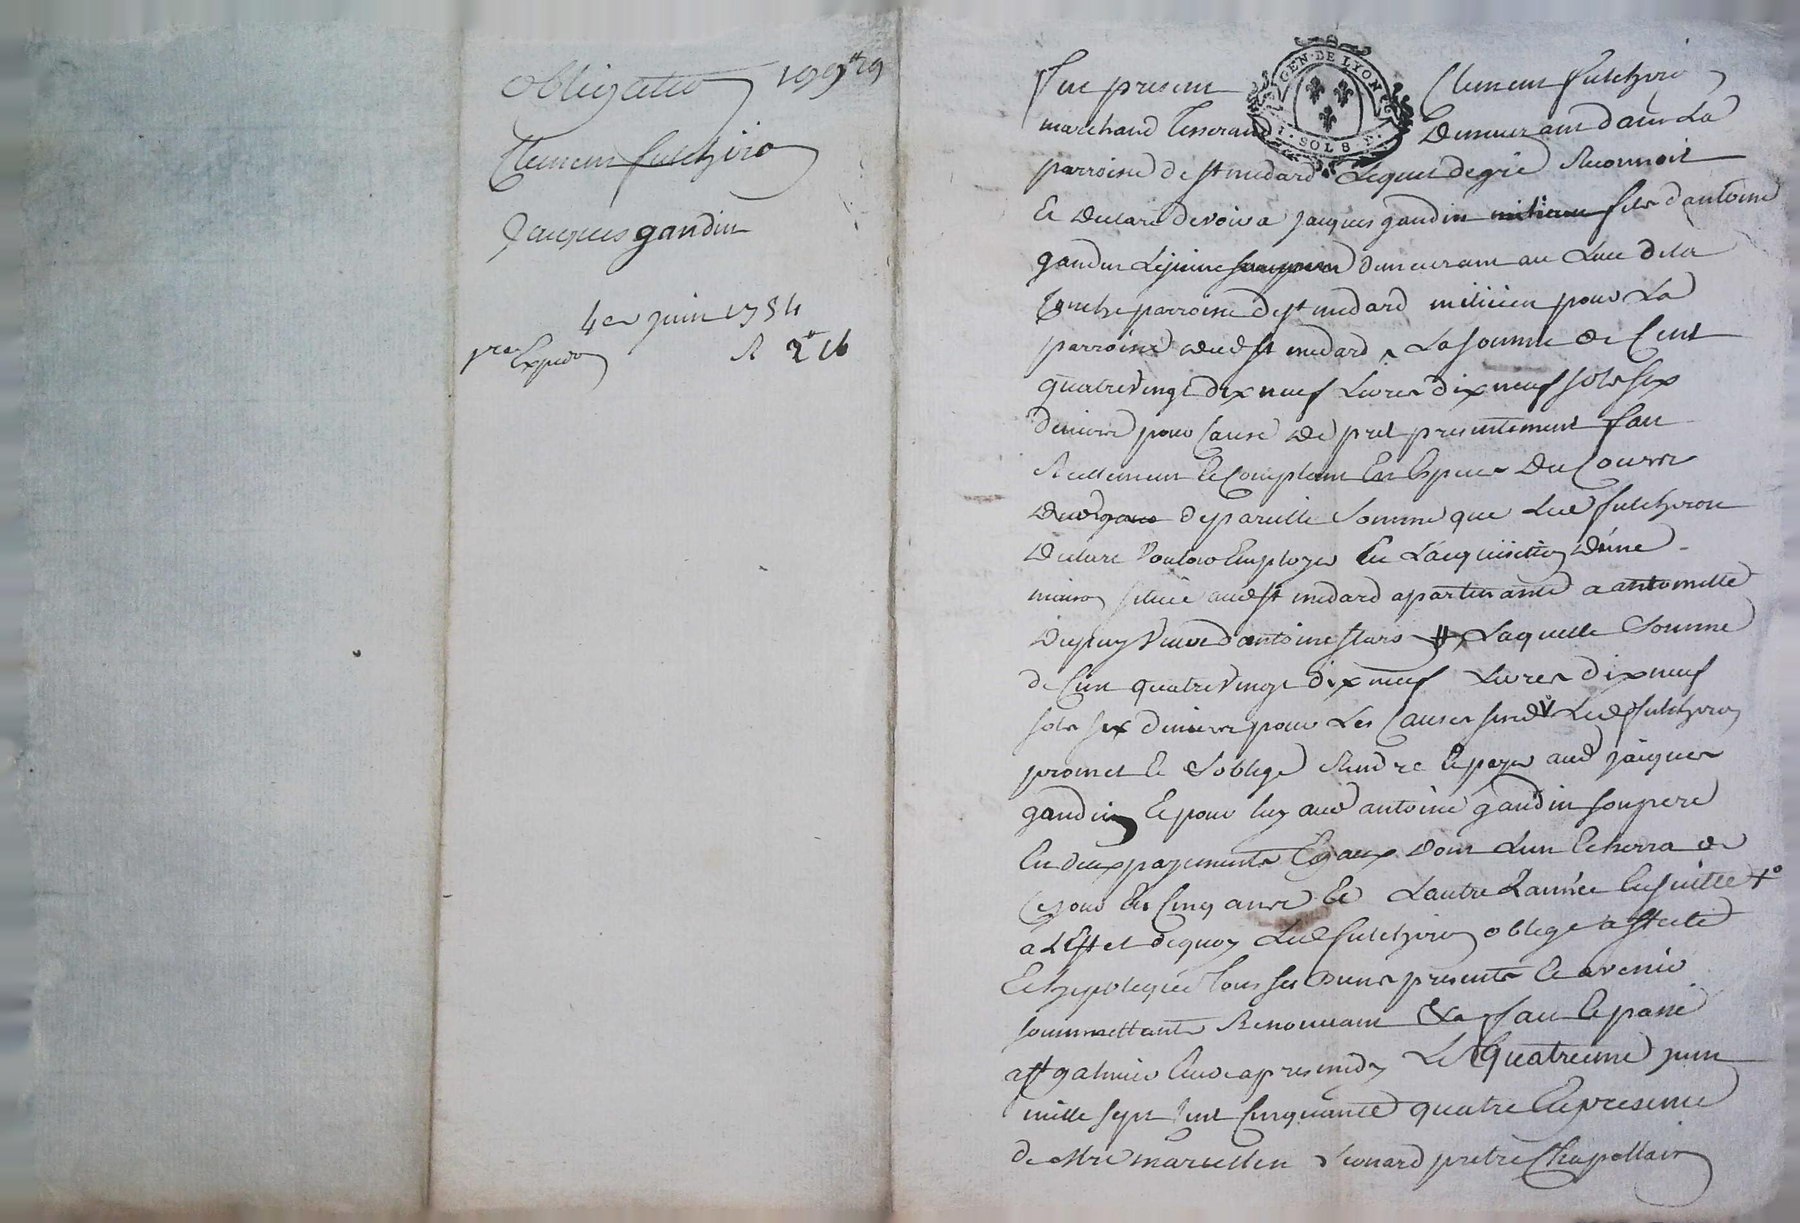 obligation 199#19
Clement fulchiron
Jacques gandin
4e juin 1754
pre Expedon
R 2# 16
GEN. DE LYON
1. SOLS
Fut present Clement fulchiron
marchand Tisserand Demeurant dans La
parroisse de st medard Lequel de gré Reconnoit
Et Declare devoir a Jacques gandin fils d'antoine
gandin Le jeune demeurant au Lieu de la
parroisse de st medard milicien pour La
parroisse dud st medard, La somme de Cent
quatre vingt dix neuf Livres dix neuf sols six
deniers pour Cause De pret presentement fait
Reellement Et Comptant En Especes Du Cours
de pareille Somme que Led fulchiron
Declare vouloir Employer En L'acquisition D'une
maison située aud st medard apartenante a antoinette
Dupuy veuve d'antoine Laquelle Somme
de Cent quatre vingt dix neuf Livres dix neuf
sols six deniers pour Les Causes susd Led fulchiron
promet Et S'oblige Rendre Et payer aud jacques
gandin Et pour luy aud antoine gandin son pere
En deux payements Egaux Dont L'un Echerra de
Ce jour En Cinq ans Et L'autre L'année Ensuitte
a L'Effet de quoy Led fulchiron oblige affecte
Et hypotequé Tous ses Biens presents Et avenir
soummettant Renonceant &a fait Et passé
a st galmier Etude apres midy Le quatrieme juin
mille sept Cent Cinquante quatre En presence
de Mre marcellin prêtre Chapellain